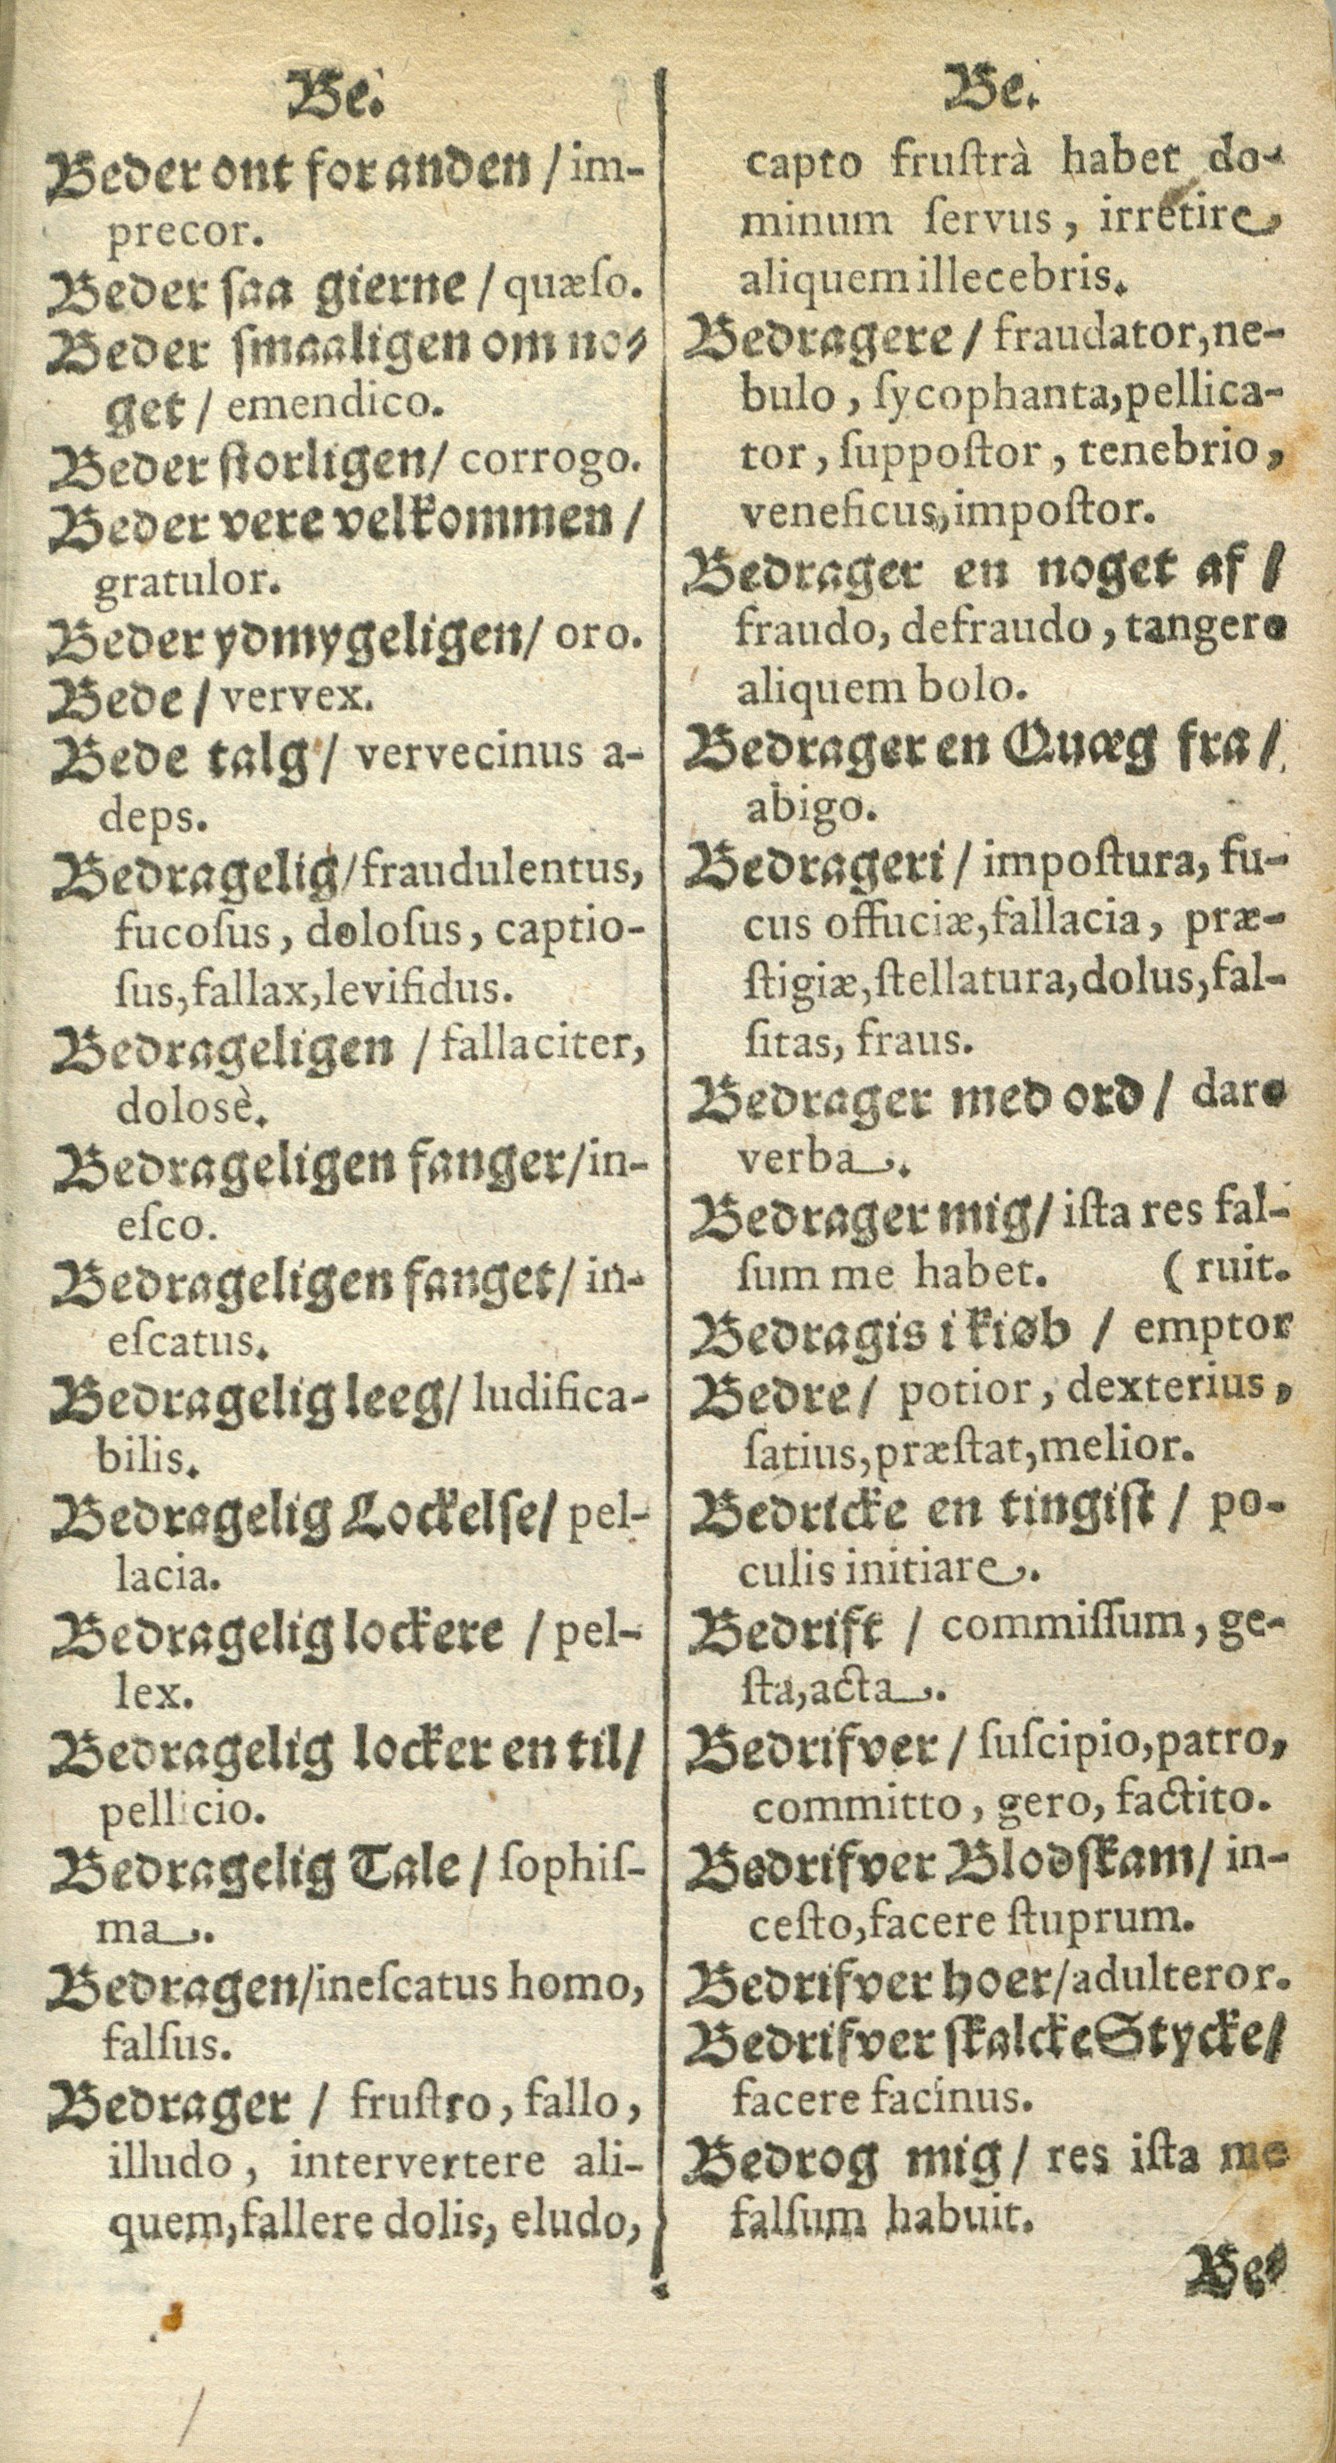 Be.
Beder ont for anden / im-
precor.
Beder saa gierne / quæſo.
Beder ſmaaligen om no⸗
get / emendico.
Beder storligen / corrogo.
Beder vere velkommen /
gratulor.
Beder ydmygeligen / oro.
Bede / vervex.
Bede talg / vervecinus a-
deps.
Bedragelig / fraudulentus,
fucoſus, doloſus, captio-
ſus, fallax, levifidus.
Bedrageligen / fallaciter,
dolosè.
Bedrageligen fanger / in-
eſco.
Bedrageligen fanget / in-
eſcatus.
Bedragelig leeg / ludifica-
bilis.
Bedragelig Lockelse / pel-
lacia.
Bedragelig lockere / pel-
lex.
Bedragelig locker en til /
pellicio.
Bedragelig Tale / ſophiſ-
ma.
Bedragen / ineſcatus homo,
falſus.
Bedrager / fruſtro, fallo,
illudo, intervertere ali-
quem, fallere dolis, eludo,
Be.
capto fruſtrà habet do-
minum ſervus, irretire
aliquem illecebris.
Bedragere / fraudator, ne-
bulo, ſycophanta, pellica-
tor, ſuppoſtor, tenebrio,
veneficus, impoſtor.
Bedrager en noget af /
fraudo, defraudo, tangere
aliquem bolo.
Bedrager en Quæg fra /
abigo.
Bedrageri / impoſtura, fu-
cus offuciæ, fallacia, præ-
ſtigiæ, ſtellatura, dolus, fal-
ſitas, fraus.
Bedrager med ord / dare
verba.
Bedrager mig / iſta res fal-
ſum me habet. (ruit.
Bedragis i kiøb / emptor
Bedre / potior, dexterius,
ſatius, præſtat, melior.
Bedricke en tingist / po-
culis initiare.
Bedrift / commiſſum, ge-
ſta, acta.
Bedrifver / ſuſcipio, patro,
committo, gero, factito.
Bedrifver Blodſkam / in-
ceſto, facere ſtuprum.
Bedrifver hoer / adulteror.
Bedrifver ſkalcke Stycke /
facere facinus.
Bedrog mig / res iſta me
falſum habuit.
Be⸗